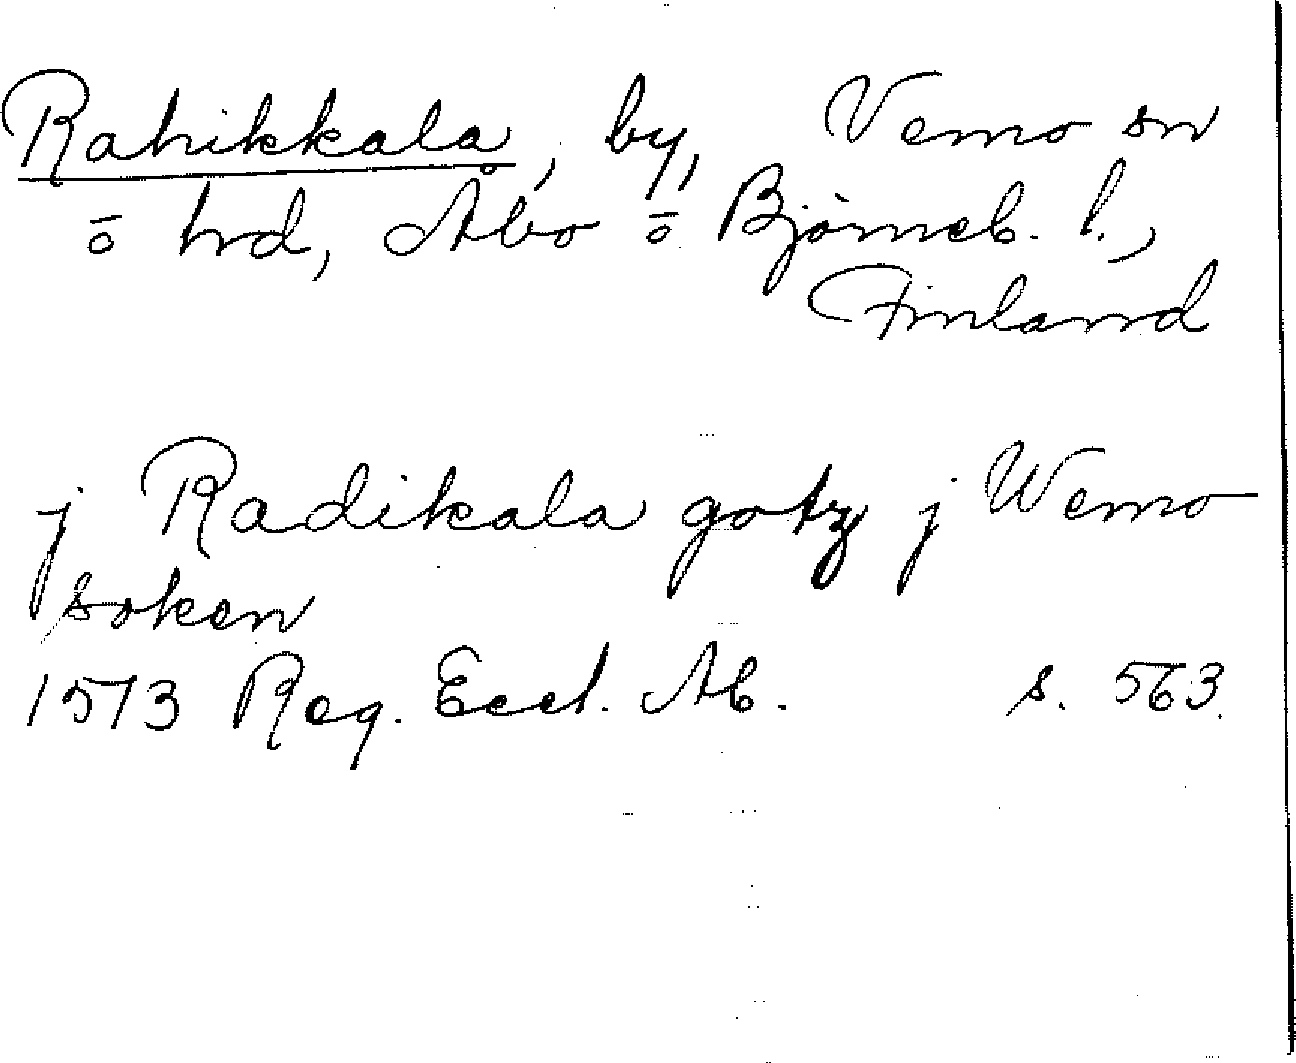 Rahikkala, by, Vemo sn
o hd, Åbo o Björneb. l.,
Finland
j Radikala gotz j Wemo
soken
1573 Reg. Eccl. Ab. s. 563.